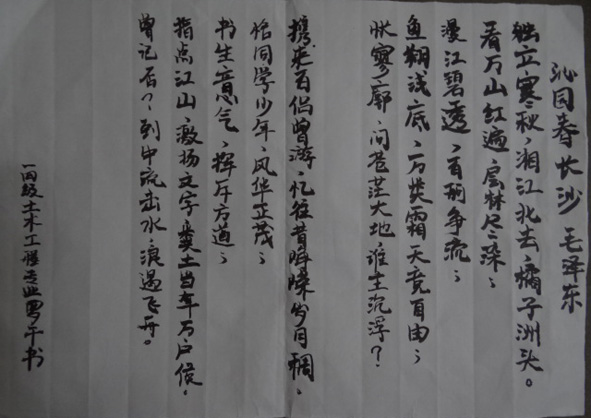 沁园春长沙 毛泽东
独立寒秋，湘江北去，橘子洲头。
看万山红遍，层林尽染；
漫江碧透，百舸争流；
鱼翔浅底，万类霜天竞自由；
怅寥廓，问苍茫大地，谁主沉浮？
携来百侣曾游，忆往昔峥嵘岁月稠，
恰同学少年，风华正茂；
书生意气，挥斥方遒；
指点江山，激扬文字，粪土当年万户侯。
曾记否？，到中流击水，浪遏飞舟。
一四级土木工程专业 干书